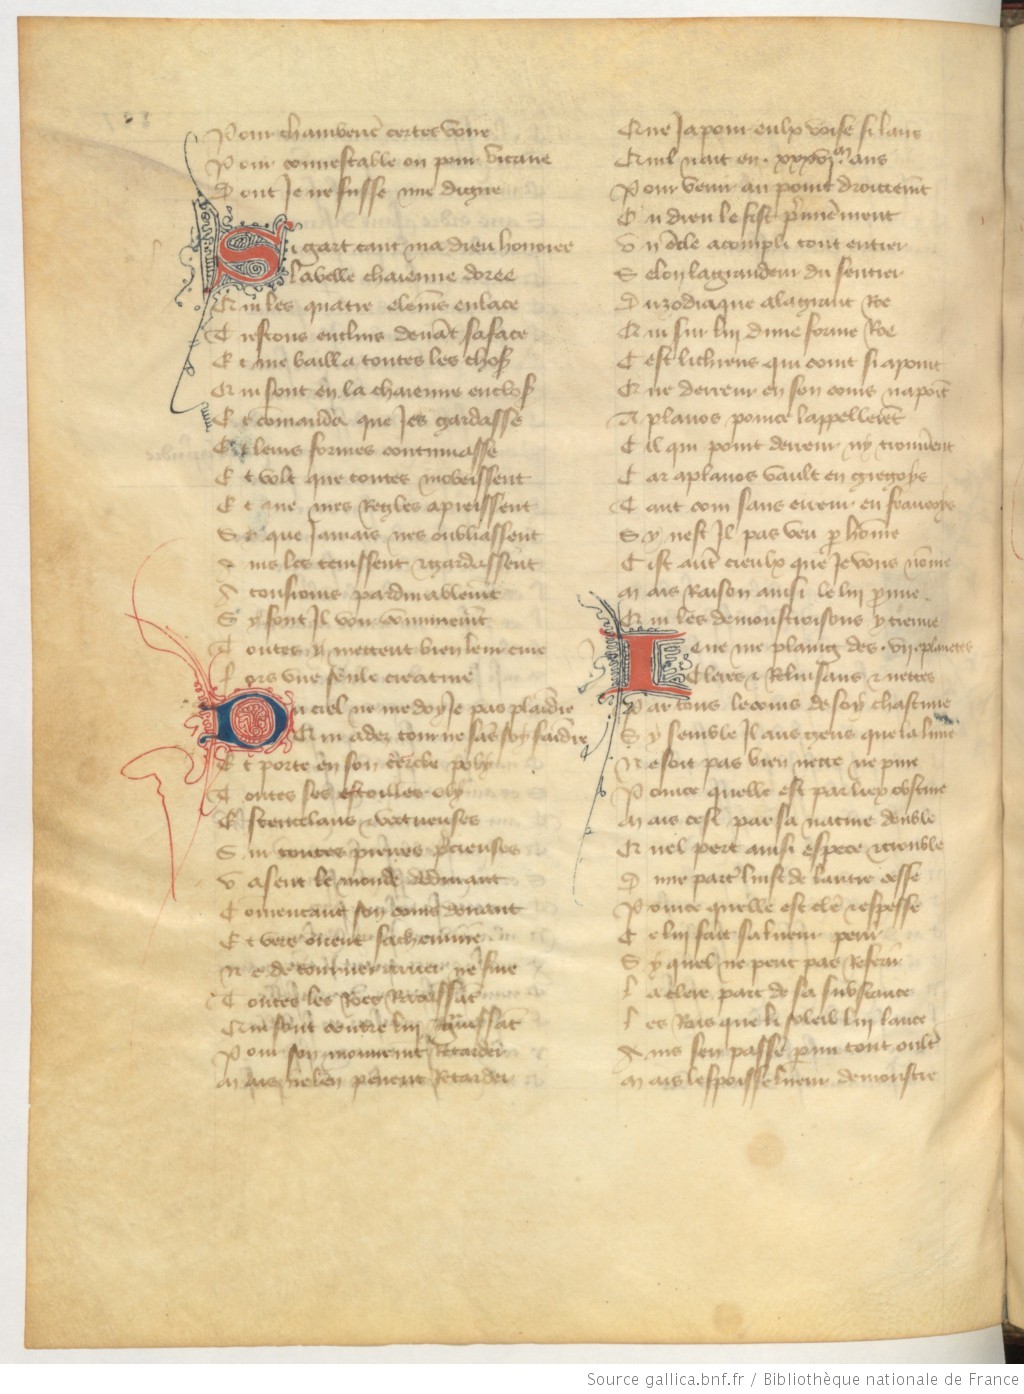 Pour chamberiere certes voire
Pour connestable ou pour vicaire
Dont Je ne fusse mie digne
Si gart tant ma dieu honoree
la belle chaienne doree
Qui les quatre elemens enlace
Tres tous enclins devant sa face
Et me bailla toutes les choses
Qui sont en la chaienne encloses
Et comanda que Jes gardasse
Et leurs formes continuasse
Et volt que toutes mobeissent
Et que mes Regles apreissent
Sy que Jamais nes oubliassent
Ains les tenissent et gardassent
A tousjours pardurablement
Sy font Il voir communement
Toutes y mettent bien leur cure
Fors une seule creature
Du ciel ne me doy Je pas plaindre
Qui adez tourne sans soy faindre
Et porte en son cercle poly
Toutes ses estoilles o ly
Estencelans et vertueuses
Sur toutes pierres precieuses
Va sent le monde deduiant
Comencant son cours devant
Et vers orient sachemine
Ne de tourner arrier ne fine
Toutes les Roes Ravissant
Qui sont contre lui
Pour son mouvement Retarder
Mais ne len peuent Retarder
Que Ja pour eulx voise si lans
Quil nait en . xxxvi.m ans
Pour venir au point droittement
Ou dieu le fist premierement
Un cercle acompli tout entier
Selon la grandeur du sentier
Du zodiaque a la grant Roe
Qui sur lui dune forme Roe
Cest li chiens qui court si a point
Que derreur en son cours na point
Aplanos pource lappellerent
Cil qui point derreur ny trouverent
Car aplanos vault en gregoys
Tant com sans erreur en francoys
Sy nest Il pas veu par homme
Cist autre cieulx que Je vous nomme
Mais Raison ainsi le lui preuve
Qui les demonstroisons y treuve
Ie ne me plaing des . vii . planetes
Cleres et Reluisans et nettes
Par tous le cours de soy chascune
Sy semble Il aus gens que la lune
Ne soit pas bien nette ne pure
Pource quelle est par lieux obscure
Mais cest par sa nature double
Quel pert ainsi espece et trouble
Dune part luist de lautre cesse
Pource quelle est clere et espesse
Ce lui fait sa lueur perir
Sy quel ne peut pas Referir
La clere part de sa substance
Les Rais que li soleil lui lance
Ains sen passe parmi tout oultre
Mais lespoisse lueur demonstre
Source gallica.bnf.fr / Bibliothèque nationale de France